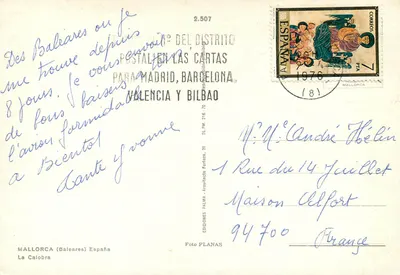 2.507
Nº DEL DISTRITO
POSTAL EN LAS CARTAS
PARA MADRID, BARCELONA,
VALENCIA Y BILBAO
1976
(8)
CORREOS
ESPAÑA
7
PTA
Des Baléares ou je
me trouve depuis
8 jours. Je vous envoi
de bons baisers
l'avion formidable
a Bientot
Tante Yvonne
M. Mme André Hélin
1 Rue du 14 Juillet
Maison Alfort
94700
France
MALLORCA (Baleares) España
La Calobra
Foto PLANAS